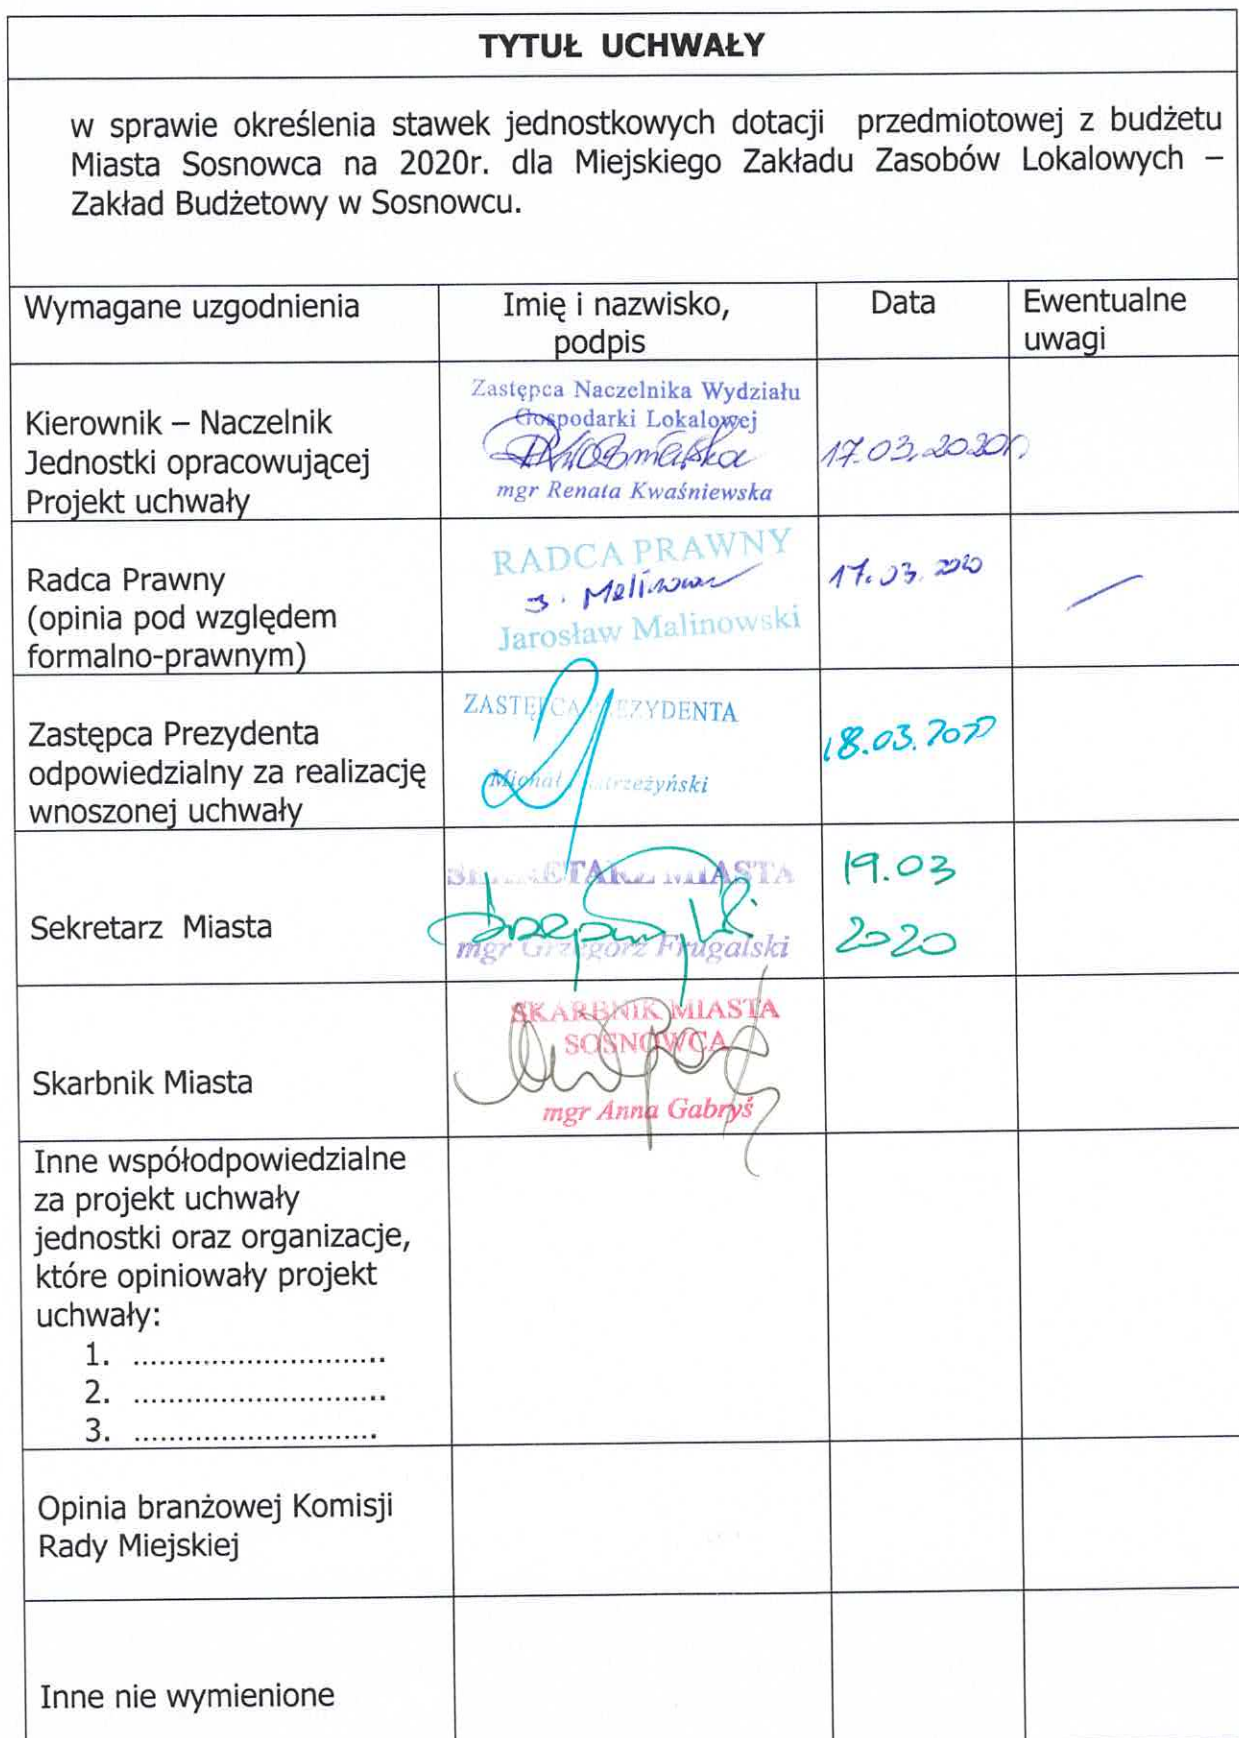 TYTUŁ UCHWAŁY
w sprawie określenia stawek jednostkowych dotacji przedmiotowej z budżetu
Miasta Sosnowca na 2020r. dla Miejskiego Zakładu Zasobów Lokalowych –
Zakład Budżetowy w Sosnowcu.
Wymagane uzgodnienia
Imię i nazwisko,
podpis
Data
Ewentualne
uwagi
Kierownik – Naczelnik
Jednostki opracowującej
Projekt uchwały
Zastępca Naczelnika Wydziału
Gospodarki Lokalowej
mgr Renata Kwaśniewska
17.03.2020r
Radca Prawny
(opinia pod względem
formalno-prawnym)
RADCA PRAWNY
Jarosław Malinowski
17.03.2020
Zastępca Prezydenta
odpowiedzialny za realizację
wnoszonej uchwały
ZASTĘPCA PREZYDENTA
Michał
18.03.2020
Sekretarz Miasta
SEKRETARZ MIASTA
mgr Grzegorz Frugalski
19.03
2020
Skarbnik Miasta
SKARBNIK MIASTA
SOSNOWCA
mgr Anna Gabryś
Inne współodpowiedzialne
za projekt uchwały
jednostki oraz organizacje,
które opiniowały projekt
uchwały:
1. .............................
2. .............................
3. ............................
Opinia branżowej Komisji
Rady Miejskiej
Inne nie wymienione